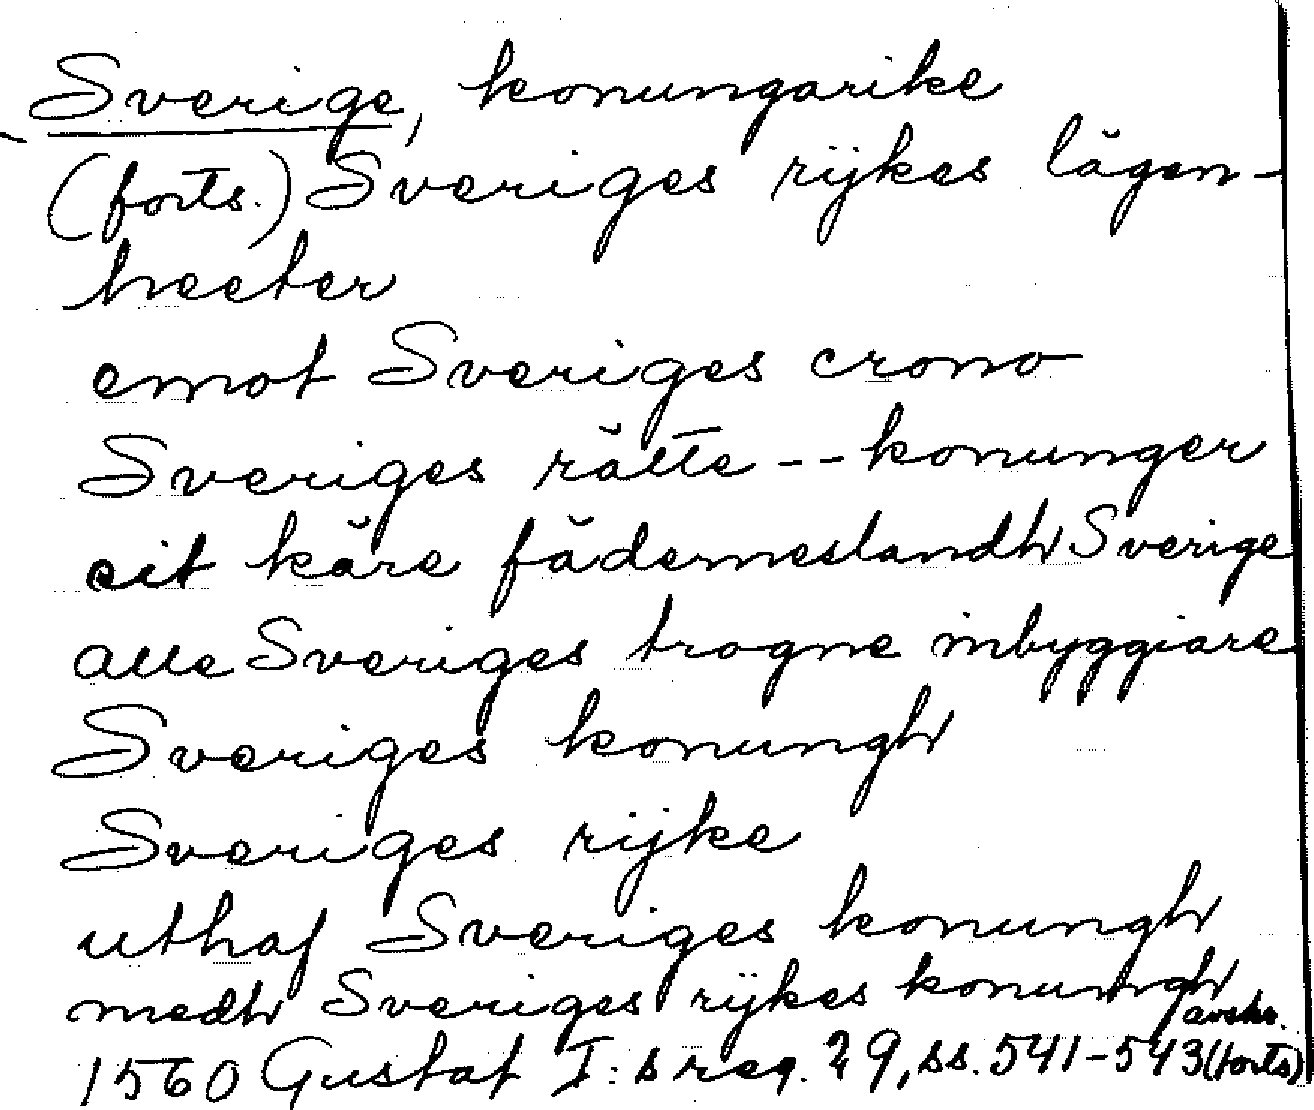 Sverige, konungarike
(forts.) Sveriges rijkes lägen-
heeter
emot Sveriges crono
Sveriges rätte -- konunger
sit käre fäderneslandh Sverige
alle Sveriges trogne inbyggiare
Sveriges konungh
Sveriges rijke
uthaf Sveriges konungh
medh Sveriges rijkes konungh
avskr.
1560 Gustaf I:s reg. 29, ss. 541-543 (forts)